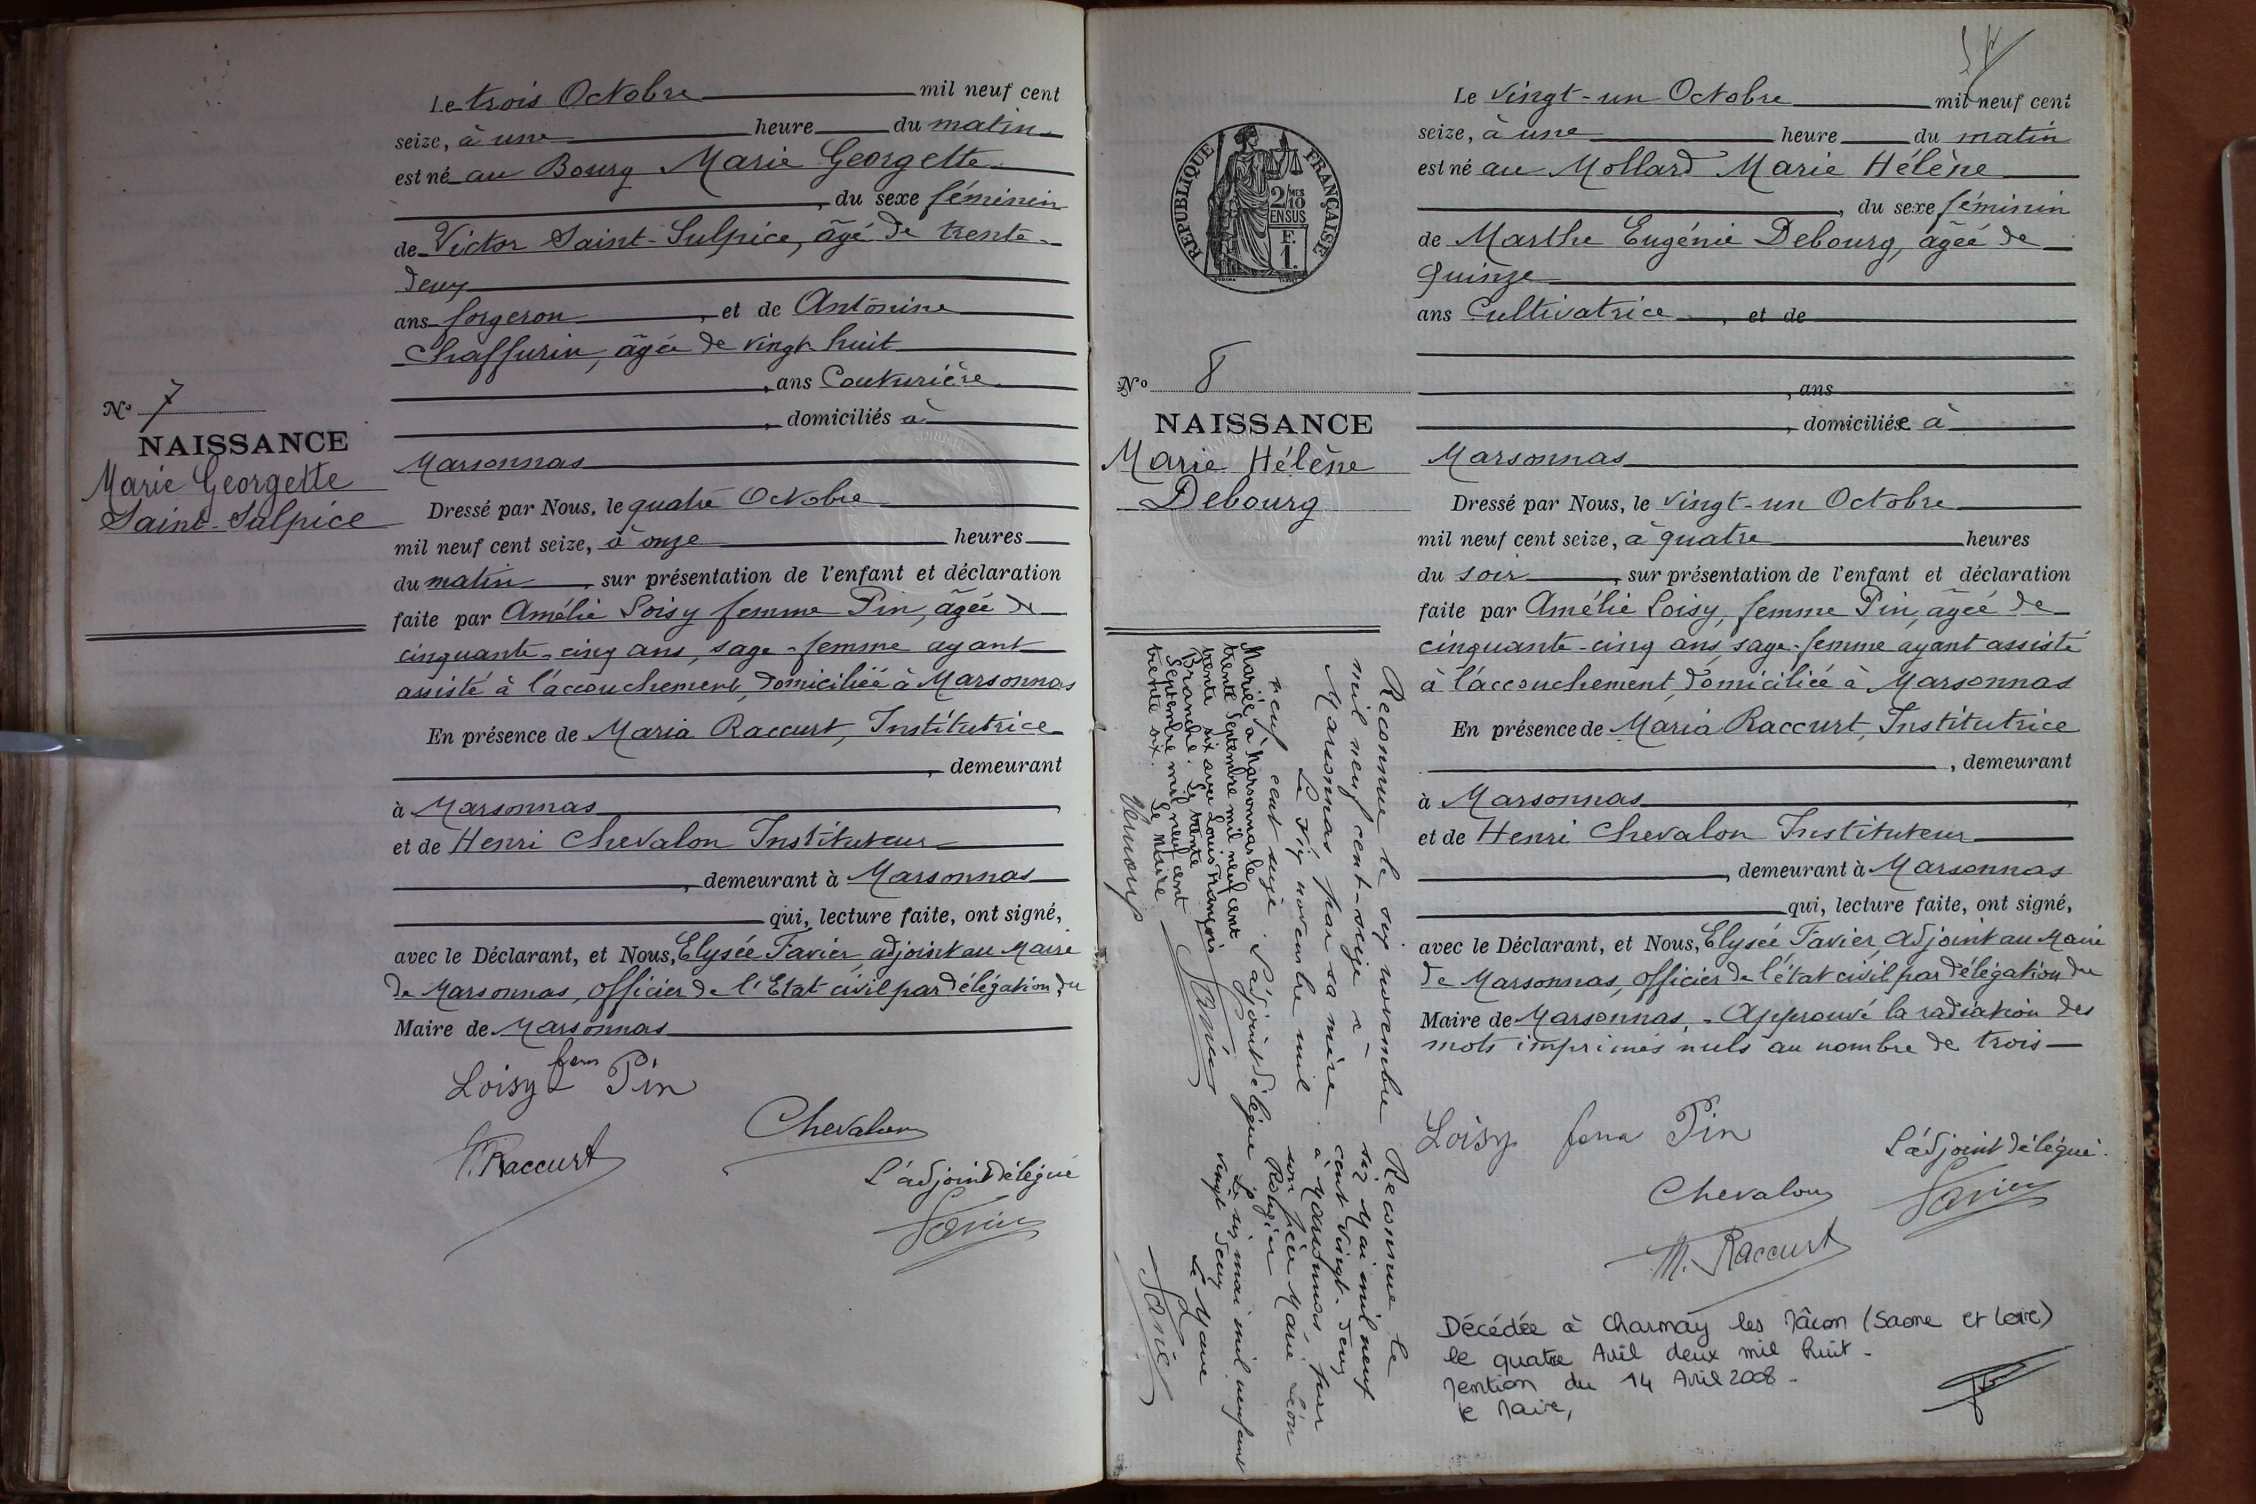 Le trois Octobre mil neuf cent
seize, à une heure du matin
est né au Bourg Marie Georgette
, du sexe féminin
de Victor Saint-Sulpice, âgé de trente-
deux
ans forgeron, et de Antonine
Chaffurin, âgée de vingt huit
, ans Couturière
, domiciliés à
Marsonnas
Dressé par Nous, le quatre Octobre
mil neuf cent seize, à onze heures
du matin, sur présentation de l'enfant et déclaration
faite par Amélie Loisy femme Pin, âgée de
cinquante-cinq ans, sage-femme ayant
assisté à l'accouchement, domiciliée à Marsonnas
En présence de Maria Raccurt, Institutrice
, demeurant
à Marsonnas,
et de Henri Chevalon Instituteur
, demeurant à Marsonnas
qui, lecture faite, ont signé,
avec le Déclarant, et Nous, Elysée Favier, adjoint au Maire
de Marsonnas, Officier de l'Etat civil par délégation du
Maire de Marsonnas
Loisy fem Pin
Chevalon
M. Raccurt
L'adjoint délégué
Favier
No 7
NAISSANCE
Marie Georgette
Saint-Sulpice
Le vingt-un Octobre mil neuf cent
seize, à une heure du matin
est né au Mollard Marie Hélène
, du sexe féminin
de Marthe Eugénie Debourg, âgée de
quinze
ans Cultivatrice, et de
, ans
, domiciliée à
Marsonnas
Dressé par Nous, le vingt-un Octobre
mil neuf cent seize, à quatre heures
du soir, sur présentation de l'enfant et déclaration
faite par Amélie Loisy, femme Pin, âgée de
cinquante-cinq ans, sage-femme ayant assisté
à l'accouchement, domiciliée à Marsonnas
En présence de Maria Raccurt, Institutrice
, demeurant
à Marsonnas,
et de Henri Chevalon Instituteur
, demeurant à Marsonnas
qui, lecture faite, ont signé,
avec le Déclarant, et Nous, Elysée Favier, adjoint au Maire
de Marsonnas, officier de l'état civil par délégation du
Maire de Marsonnas, - Approuvé la radiation des
mots imprimés nuls au nombre de trois -
Loisy fem Pin
L'adjoint délégué
Chevalon
Favier
M. Raccurt
Décédée à Charnay les Mâcon (Saone et Loire)
le quatre Avril deux mil huit -
Mention du 14 Avril 2008 -
le Maire,
RÉPUBLIQUE FRANÇAISE
2/10 MES
EN SUS
F.
1.
No 8
NAISSANCE
Marie Hélène
Debourg
Reconnue le six novembre
mil neuf cent-seize à
Marsonnas par sa mère.
Le six novembre mil
neuf cent seize. L'adjoint délégué
Favier
Reconnue le
six Mai mil neuf
cent vingt-deux
à Marsonnas, par
son père Marie Léon
Le six mai mil neuf cent
vingt deux
Le Maire
Favier
Mariée à Marsonnas le
trente Septembre mil neuf cent
trente six avec Louis François
Branche. Le trente
Septembre mil neuf cent
trente six. Le Maire